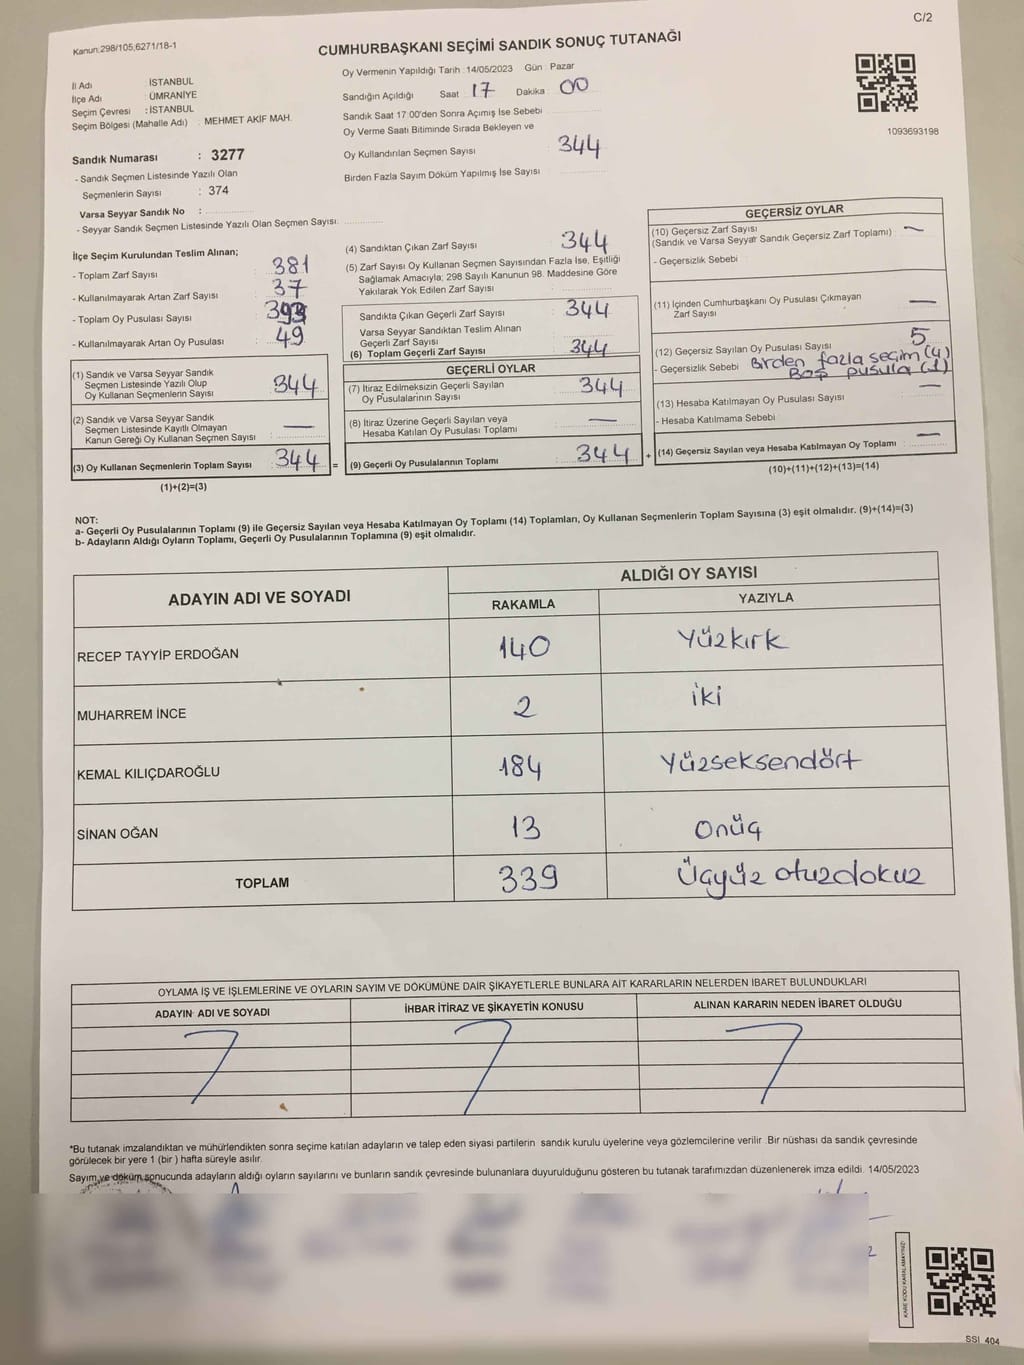 C/2
Kanun:298/105;6271/18-1
CUMHURBAŞKANI SEÇİMİ SANDIK SONUÇ TUTANAĞI
İl Adı : İSTANBUL
İlçe Adı : ÜMRANİYE
Seçim Çevresi : İSTANBUL
Seçim Bölgesi (Mahalle Adı) : MEHMET AKİF MAH.
Oy Vermenin Yapıldığı Tarih :14/05/2023 Gün : Pazar
Sandığın Açıldığı Saat : 17 Dakika : 00
Sandık Saat 17:00'den Sonra Açımış İse Sebebi :
Oy Verme Saati Bitiminde Sırada Bekleyen ve
Oy Kullandırılan Seçmen Sayısı : 344
Birden Fazla Sayım Döküm Yapılmış İse Sayısı :
1093693198
Sandık Numarası : 3277
- Sandık Seçmen Listesinde Yazılı Olan
Seçmenlerin Sayısı : 374
Varsa Seyyar Sandık No :
- Seyyar Sandık Seçmen Listesinde Yazılı Olan Seçmen Sayısı:
İlçe Seçim Kurulundan Teslim Alınan;
- Toplam Zarf Sayısı : 381
- Kullanılmayarak Artan Zarf Sayısı : 37
- Toplam Oy Pusulası Sayısı : 393
- Kullanılmayarak Artan Oy Pusulası : 49
(1) Sandık ve Varsa Seyyar Sandık
Seçmen Listesinde Yazılı Olup
Oy Kullanan Seçmenlerin Sayısı : 344
(2) Sandık ve Varsa Seyyar Sandık
Seçmen Listesinde Kayıtlı Olmayan
Kanun Gereği Oy Kullanan Seçmen Sayısı : —
(3) Oy Kullanan Seçmenlerin Toplam Sayısı : 344 =
(1)+(2)=(3)
(4) Sandıktan Çıkan Zarf Sayısı : 344
(5) Zarf Sayısı Oy Kullanan Seçmen Sayısından Fazla İse, Eşitliği
Sağlamak Amacıyla; 298 Sayılı Kanunun 98. Maddesine Göre
Yakılarak Yok Edilen Zarf Sayısı :
Sandıkta Çıkan Geçerli Zarf Sayısı : 344
Varsa Seyyar Sandıktan Teslim Alınan
Geçerli Zarf Sayısı :
(6) Toplam Geçerli Zarf Sayısı : 344
GEÇERLİ OYLAR
(7) İtiraz Edilmeksizin Geçerli Sayılan
Oy Pusulalarının Sayısı : 344
(8) İtiraz Üzerine Geçerli Sayılan veya
Hesaba Katılan Oy Pusulası Toplamı : —
(9) Geçerli Oy Pusulalarının Toplamı : 344 +
GEÇERSİZ OYLAR
(10) Geçersiz Zarf Sayısı : —
(Sandık ve Varsa Seyyar Sandık Geçersiz Zarf Toplamı)
- Geçersizlik Sebebi :
(11) İçinden Cumhurbaşkanı Oy Pusulası Çıkmayan
Zarf Sayısı : —
(12) Geçersiz Sayılan Oy Pusulası Sayısı : 5
- Geçersizlik Sebebi : Birden fazla seçim (4)
Boş pusula (1)
(13) Hesaba Katılmayan Oy Pusulası Sayısı : —
- Hesaba Katılmama Sebebi :
(14) Geçersiz Sayılan veya Hesaba Katılmayan Oy Toplamı : —
(10)+(11)+(12)+(13)=(14)
NOT:
a- Geçerli Oy Pusulalarının Toplamı (9) ile Geçersiz Sayılan veya Hesaba Katılmayan Oy Toplamı (14) Toplamları, Oy Kullanan Seçmenlerin Toplam Sayısına (3) eşit olmalıdır. (9)+(14)=(3)
b- Adayların Aldığı Oyların Toplamı, Geçerli Oy Pusulalarının Toplamına (9) eşit olmalıdır.
ADAYIN ADI VE SOYADI ALDIĞI OY SAYISI
RAKAMLA YAZIYLA
RECEP TAYYİP ERDOĞAN 140 Yüzkırk
MUHARREM İNCE 2 iki
KEMAL KILIÇDAROĞLU 184 Yüzseksendört
SİNAN OĞAN 13 Onüç
TOPLAM 339 Üçyüz otuzdokuz
OYLAMA İŞ VE İŞLEMLERİNE VE OYLARIN SAYIM VE DÖKÜMÜNE DAİR ŞİKAYETLERLE BUNLARA AİT KARARLARIN NELERDEN İBARET BULUNDUKLARI
ADAYIN ADI VE SOYADI İHBAR İTİRAZ VE ŞİKAYETİN KONUSU ALINAN KARARIN NEDEN İBARET OLDUĞU
*Bu tutanak imzalandıktan ve mühürlendikten sonra seçime katılan adayların ve talep eden siyasi partilerin sandık kurulu üyelerine veya gözlemcilerine verilir .Bir nüshası da sandık çevresinde
görülecek bir yere 1 (bir ) hafta süreyle asılır.
Sayım ve döküm sonucunda adayların aldığı oyların sayılarını ve bunların sandık çevresinde bulunanlara duyurulduğunu gösteren bu tutanak tarafımızdan düzenlenerek imza edildi. 14/05/2023
KARE KODU KARALAMAYINIZ!
SSI_404